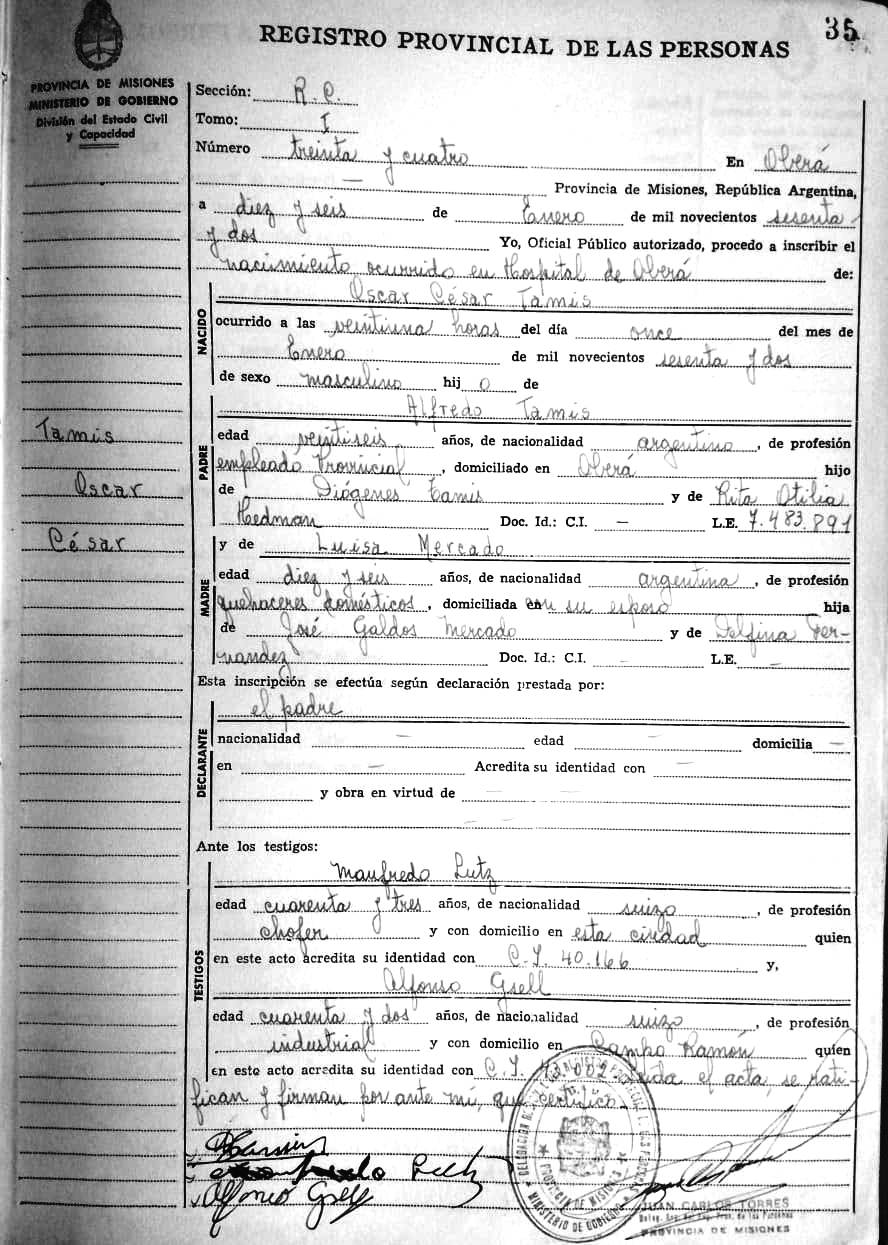 35
REGISTRO PROVINCIAL DE LAS PERSONAS
PROVINCIA DE MISIONES
MINISTERIO DE GOBIERNO
División del Estado Civil
y Capacidad
Tamis
Oscar
César
Sección: R. C.
Tomo: I
Número treinta y cuatro En Oberá
— Provincia de Misiones, República Argentina,
a diez y seis de Enero de mil novecientos sesenta
y dos Yo, Oficial Público autorizado, procedo a inscribir el
nacimiento ocurrido en Hospital de Oberá de:
NACIDO
Oscar César Tamis
ocurrido a las veintiuna horas del día once del mes de
Enero de mil novecientos sesenta y dos
de sexo masculino hij o de
PADRE
Alfredo Tamis
edad veintiseis años, de nacionalidad argentino, de profesión
empleado Provincial, domiciliado en Oberá hijo
de Diógenes Tamis y de Rita Otilia
Hedman Doc. Id.: C.I. — L.E. 7.483.891
MADRE
y de Luisa Mercado
edad diez y seis años, de nacionalidad argentina, de profesión
quehaceres domésticos, domiciliada con su esposo hija
de José Galdos Mercado y de Delfina Fer-
nandez Doc. Id.: C.I. — L.E. —
Esta inscripción se efectúa según declaración prestada por:
DECLARANTE
el padre
nacionalidad — edad — domicilia —
en — Acredita su identidad con —
y obra en virtud de — —
— —
Ante los testigos:
TESTIGOS
Manfredo Lutz
edad cuarenta y tres años, de nacionalidad suizo, de profesión
chofer y con domicilio en esta ciudad quien
en este acto acredita su identidad con C.I. 40.166 y,
Alfonso Gsell
edad cuarenta y dos años, de nacionalidad suizo, de profesión
industrial y con domicilio en Campo Ramón quien
en este acto acredita su identidad con C.I. el acta, se rati-
fican y firman por ante mí, que certifico.
Alfonso Gsell
PROVINCIA DE MISIONES
MINISTERIO DE GOBIERNO
JUAN CARLOS TORRES
PROVINCIA DE MISIONES